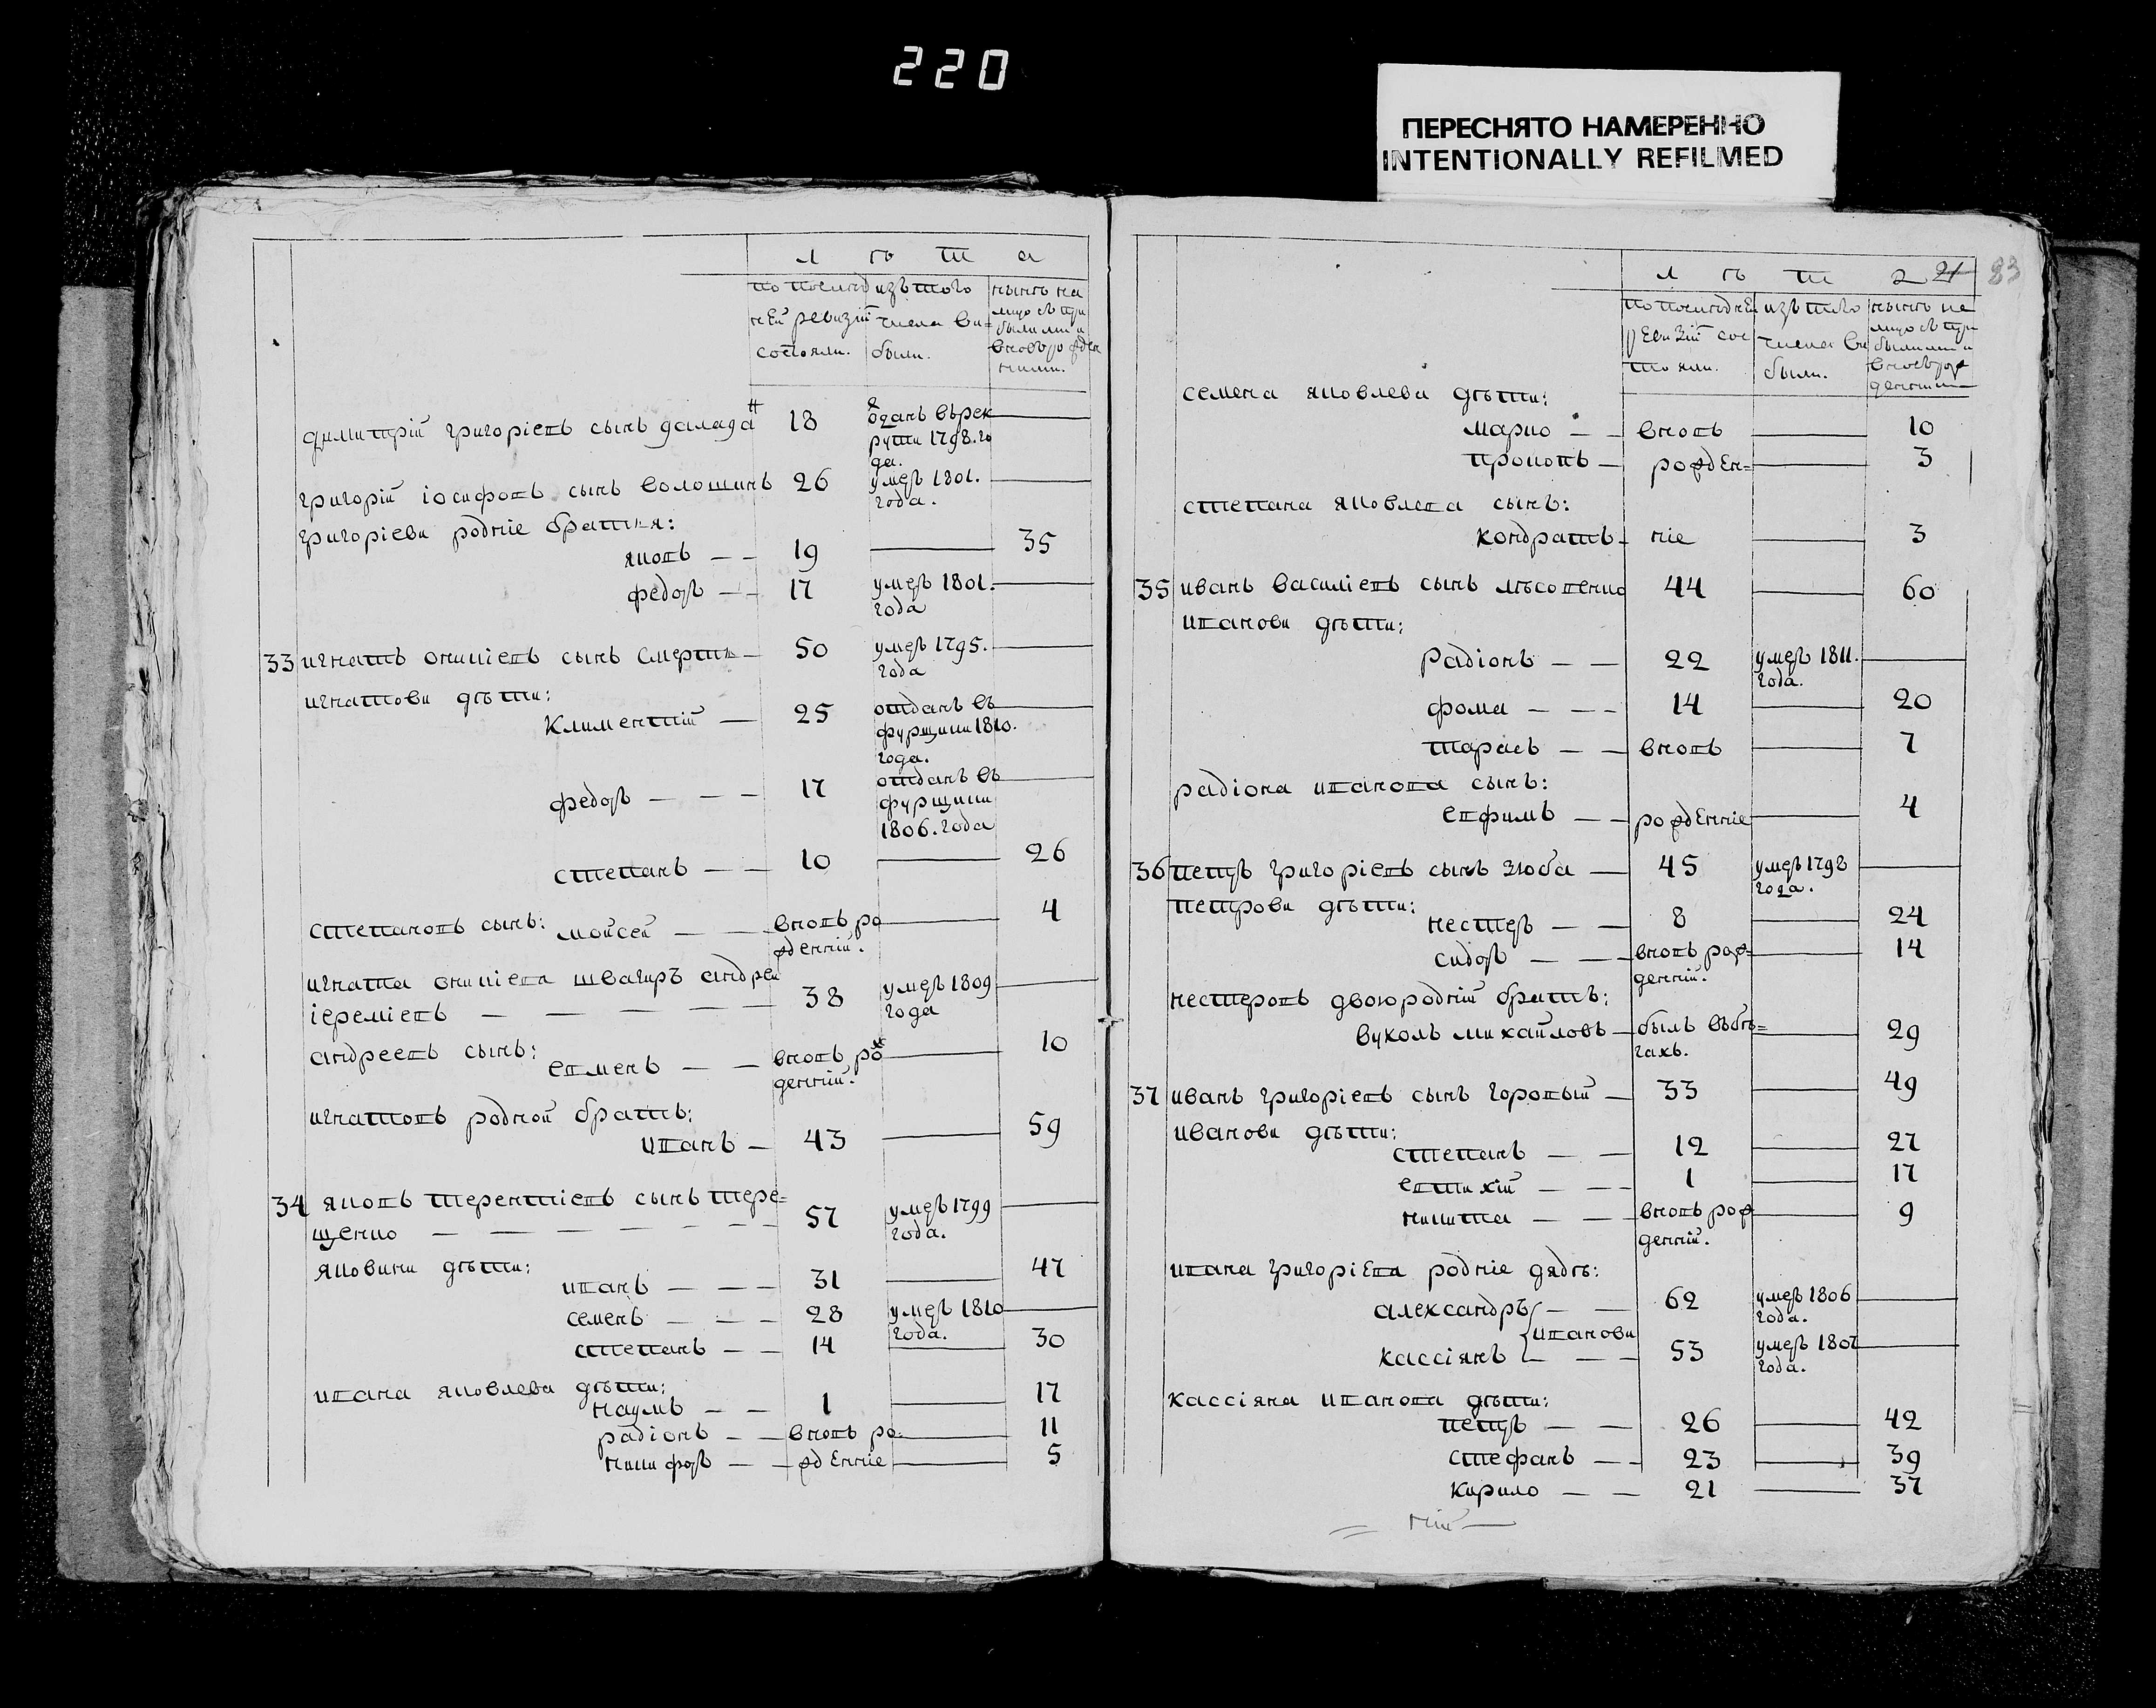 220
ПЕРЕСНЯТО НАМЕРЕННО
INTENTIONALLY REFILMED
лѣта
по послѣд изъ того нынѣ на
ней ревизіи числа вы= лицо съ при
состояли. были. былыми и
вновь рожден
ными.
Димитрій Григоріевъ сынъ далада 18 отданъ въ рек
рути 1798. го
да.
Григорій Іосифовъ сынъ Волошинъ 26 умеръ 1801.
года.
Григоріеви родніе братья:
Яковъ 19 35
Федоръ 17 умеръ 1801.
года
33 Игнатъ Оникіевъ сынъ Смертин 50 умеръ 1795.
года
Игнатови дѣти:
Климентій 25 отданъ въ
фурщики 1810.
года.
Федоръ 17 отданъ въ
фурщики
1806. года
Степанъ 10 26
Степановъ сынъ: Мойсей вновь ро 4
жденній.
Игната Оникіева швагиръ Андрей
Іереміевъ 38 умеръ 1809
года
Андреевъ сынъ: Евменъ вновь рож 10
денній.
Игнатовъ родной братъ:
Иванъ 43 59
34 Яковъ Терентіевъ сынъ Тере=
щенко 57 умеръ 1799
года.
Яковини дѣти:
Иванъ 31 47
Семенъ 28 умеръ 1810
года.
Степанъ 14 30
Ивана Яковлева дѣти:
Наумъ 1 17
Радіонъ вновь ро 11
Никифоръ жденніе 5
лѣта 21 83
по послѣдней изъ того нынѣ на
ревизіи сос числа вы лицо съ при
тояли. были. былыми и
вновь рож
денними
Семена Яковлева дѣти:
Марко вновь 10
Прокопъ рожден= 3
Степана Яковлева сынъ:
Кондратъ ніе 3
35 Иванъ Василіевъ сынъ Мѣсовенко 44 60
Иванови дѣти:
Радіонъ 22 умеръ 1811.
года.
Фома 14 20
Тарасъ вновь 7
Радіона Иванова сынъ:
Евфимъ рожденніе 4
36 Петръ Григоріевъ сынъ Зюба 45 умеръ 1798
года.
Петрови дѣти:
Нестеръ 8 24
Сидоръ вновь рож= 14
денній.
Нестеровъ двоюродній братъ:
Вуколъ Михайловъ былъ въ бѣ= 29
гахъ.
37 Иванъ Григоріевъ сынъ Горовый 33 49
Иванови дѣти:
Степанъ 12 27
Евтихій 1 17
Никита вновь рож 9
денній.
Ивана Григоріева родніе дядѣ:
Александръ 62 умеръ 1806
года.
Иванови
Кассіянъ 53 умеръ 1807
года.
Кассіяна Иванова дѣти:
Петръ 26 42
Стефанъ 23 39
Кирило 21 37